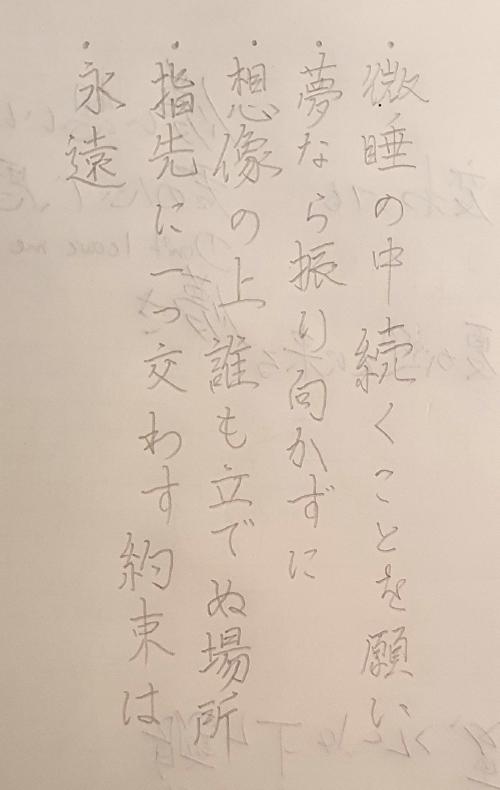 ・微睡の中 続くことを願い
・夢なら振り向かずに
・想像の上 誰も立でぬ場所
・指先に一つ交わす 約束は
・永遠